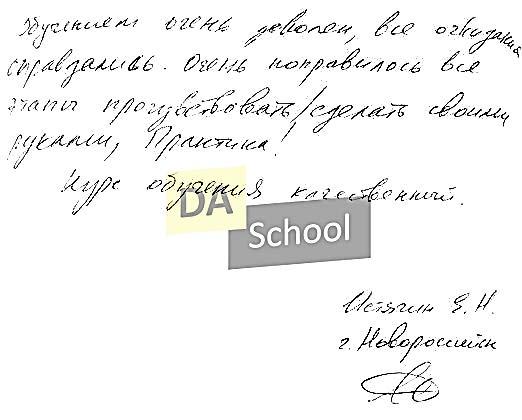 Обучением очень доволен, все ожидания
оправдались. Очень понравилось все
этапы прочувствовать/сделать своими
руками, Практика!
Курс обучения качественный.
DA
School
г. Новороссийск